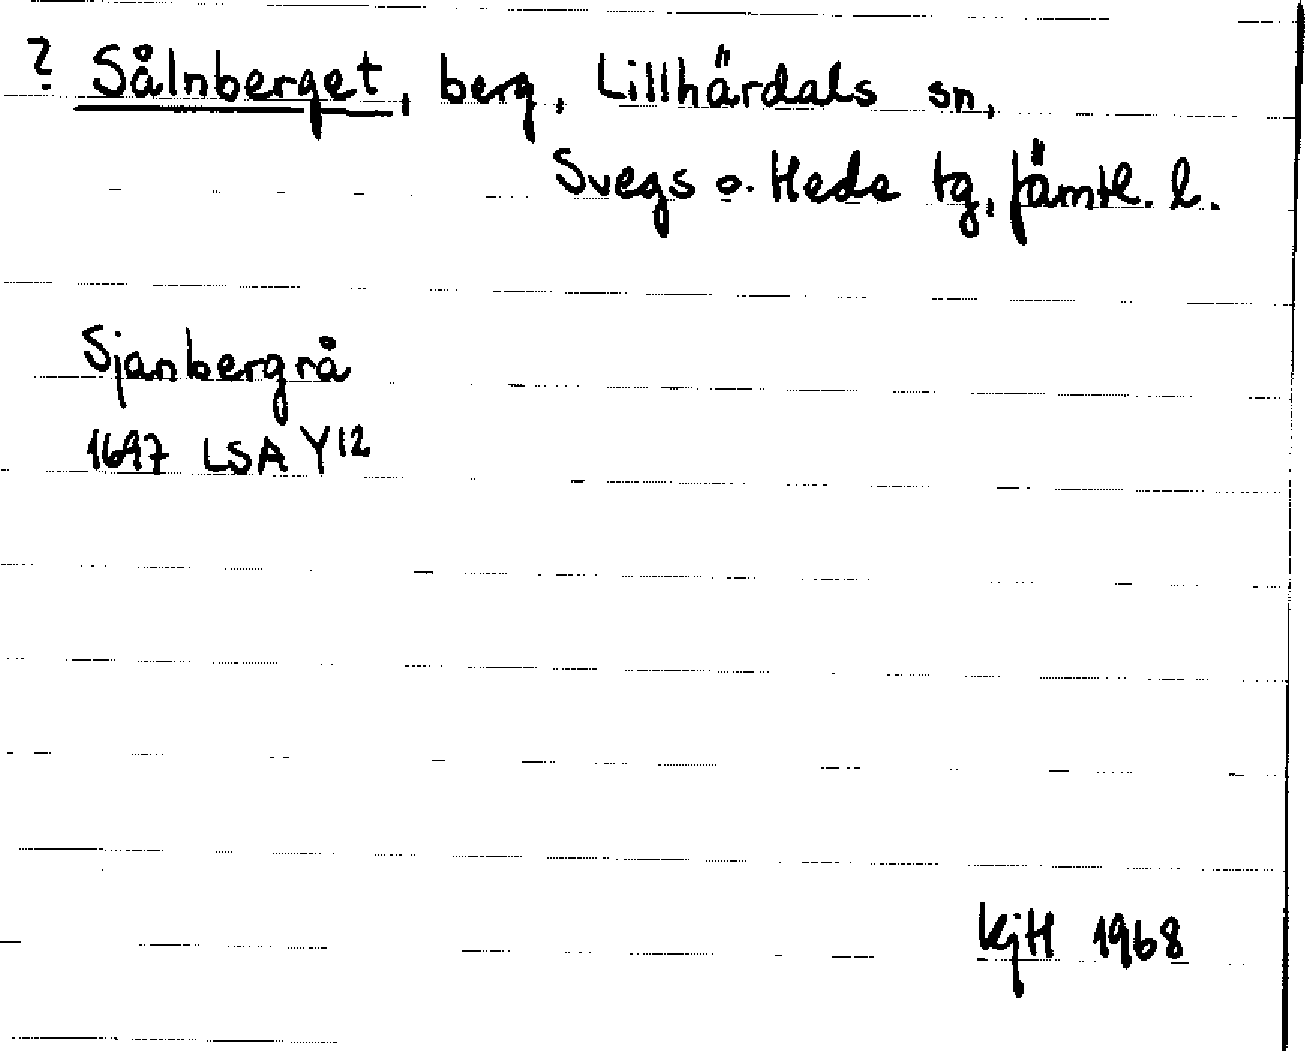 ? Sålnberget, berg, Lillhärdals sn,
Svegs o. Hede tg, Jämtl. l.
Sjanbergrå
1697 LSA Y12
KjH 1968